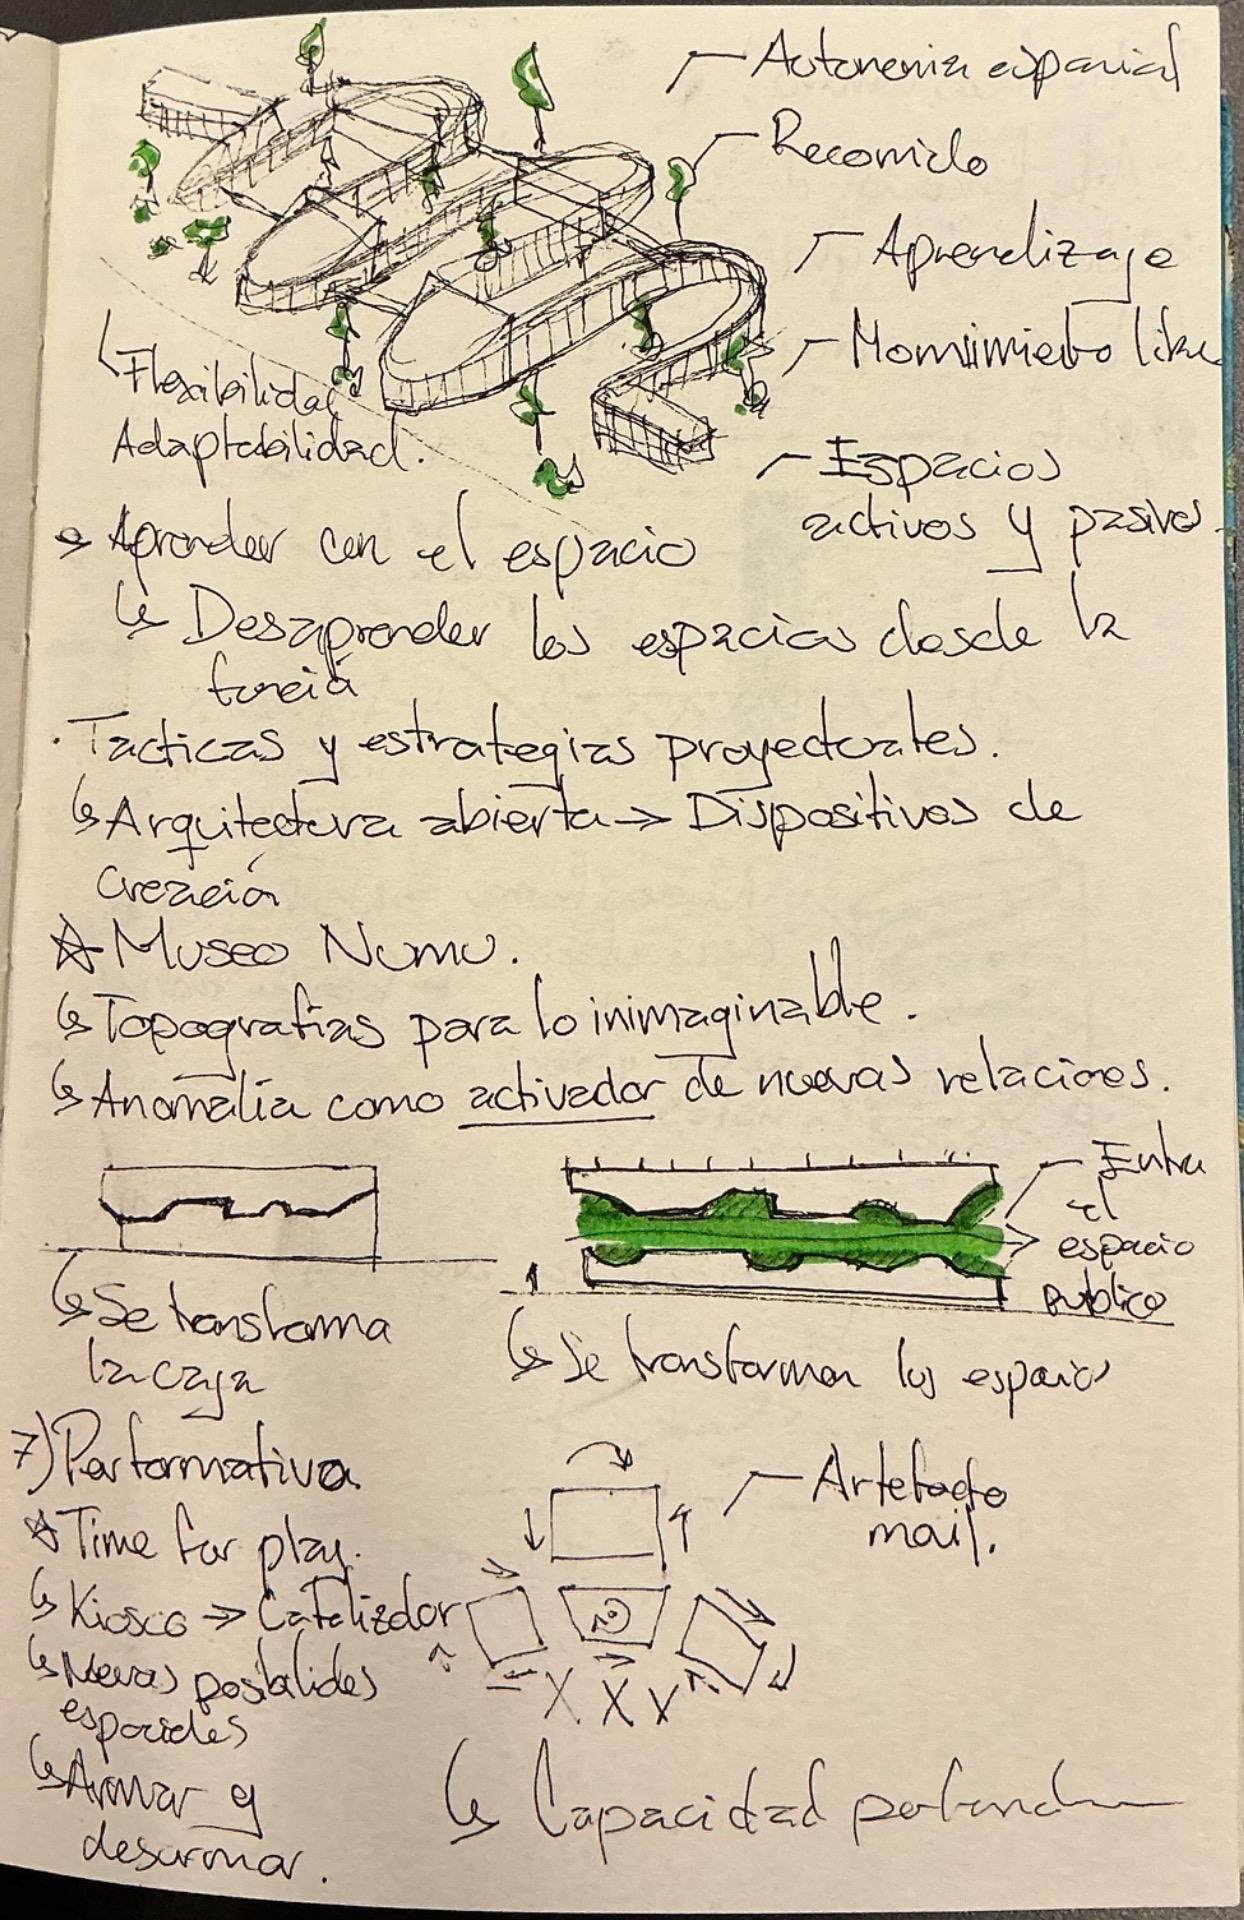 Autonomia espacial
Recorrido
Aprendizaje
Movimiento libre
Espacios
activos y pasivos.
Flexibilidad
Adaptabilidad.
Aprender con el espacio
Desaprender los espacios desde la
función
· Tacticas y estrategias proyectuales.
Arquitectura abierta → Dispositivos de
creación
☆ Museo Numu.
Topografias para lo inimaginable.
Anomalía como activador de nuevas relaciones.
Entra
el
espacio
publico
Se transforma
la caja
Se transforman los espacios
7) Performativa
Artefacto
mail.
☆ Time for play.
Kiosco → Catalizador
Nuevas posibilides
espaciales
Armar y
desarmar.
Capacidad